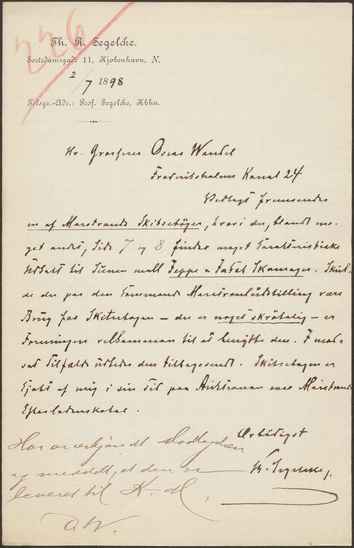 226
Th. R. Segelcke.
Sortedamsgade 11, Kjøbenhavn, N.
2/7 1898
Telegr.-Adr.: Prof. Segelcke, Kbhn.
Hr. Grosserer Oscar Wandel
Frederiksholms Kanal 24
Vedlagt fremsendes
en af Marstrands Skitsebøger, hvori der, blandt me-
get andet, Side 7 og 8 findes noget
til Jeppe
de der paa den Marstrandudstilling være
Brug for Skitsebogen — der er noget skrøbelig — er
Foreningen velkommen til at benytte den. I mod-
sat Tilfælde udbedes den tilbagesendt. Skitsebogen er
kjøbt af mig i sin Tid paa Auktionen over Marstrands
Efterladenskaber.
Ærbødigst
Th. Segelcke
Har anerkjendt Modtagelsen
og meddelt, at den er
leveret til K. M.
O.W.